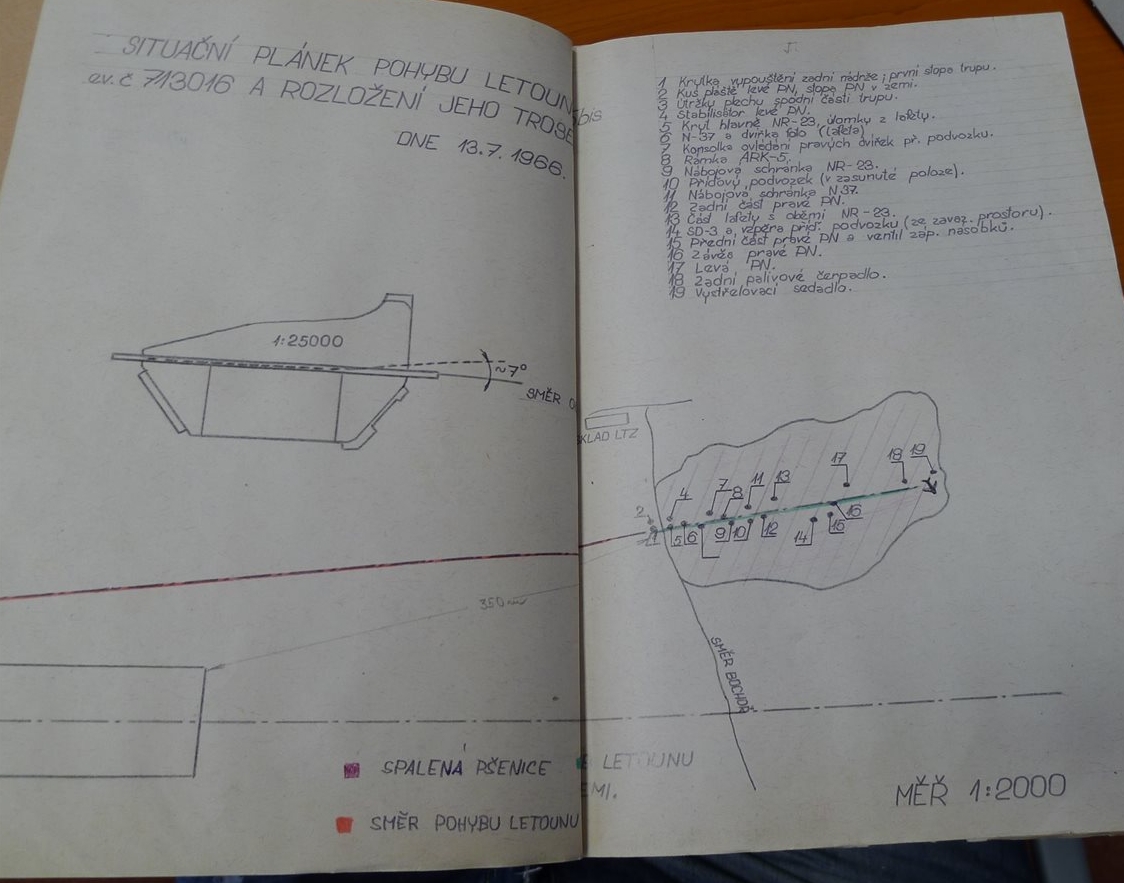 SITUAČNÍ PLÁNEK POHYBU LETOUN
ev.č 713016 A ROZLOŽENÍ JEHO TROSE
DNE 13.7.1966.
1:25000
~7°
SMĚR
350 m
SPALENÁ PŠENICE
SMĚR POHYBU LETOUNU
5.
bis
1 Krytka vypouštění zadní nádrže; první stopa trupu.
2 Kus pláště levé PN, stopa PN v zemi.
3 Útržky plechu spodní části trupu.
4 Stabilisátor levé PN.
5 Kryt hlavně NR-23, úlomky z lafety.
6 N-37 a dvířka foto (lafeta)
7 Konsolka ovládání pravých dvířek př. podvozku.
8 Rámka ARK-5.
9 Nábojová schránka NR-23.
10 Příďový podvozek (v zasunuté poloze).
11 Nábojová schránka N37.
12 Zadní část pravé PN.
13 Část lafety s oběmi NR-23.
14 SD-3 a vzpěra příď. podvozku (ze zavaz. prostoru).
15 Přední část pravé PN a ventil záp. násobků.
16 Závěs pravé PN.
17 Levá PN.
18 Zadní palivové čerpadlo.
19 Vystřelovací sedadlo.
SKLAD LTZ
2
1
4
5
6
7
8
9
10
11
12
13
14
15
16
17
18
19
SMĚR BOCHOŘ
LETOUNU
EMI.
MĚŘ 1:2000